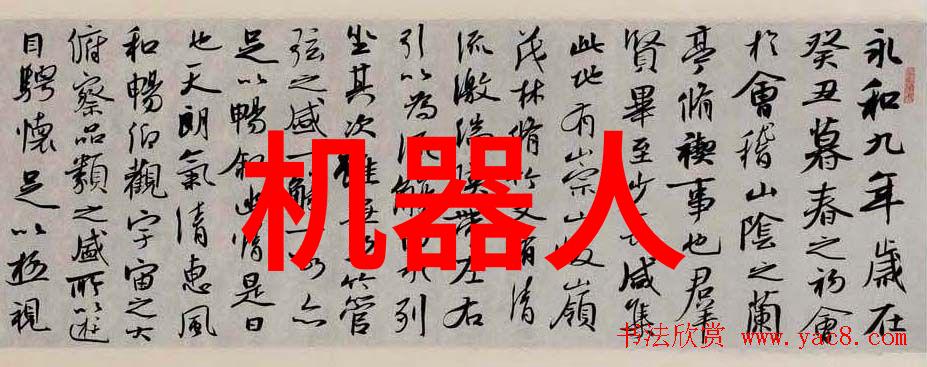 永和九年歲在
癸丑暮春之初會
於會稽山陰之蘭
亭脩禊事也羣
賢畢至少長咸集
此地有崇山峻嶺
茂林脩竹又有清
流激湍暎帶左右
引以為流觴曲水列
坐其次雖無絲竹管
弦之盛一觴一詠亦
足以暢敘幽情是日
也天朗氣清惠風
和暢仰觀宇宙之大
俯察品類之盛所以遊
目騁懷足以極視
机器人
书法欣赏 www.yac8.com